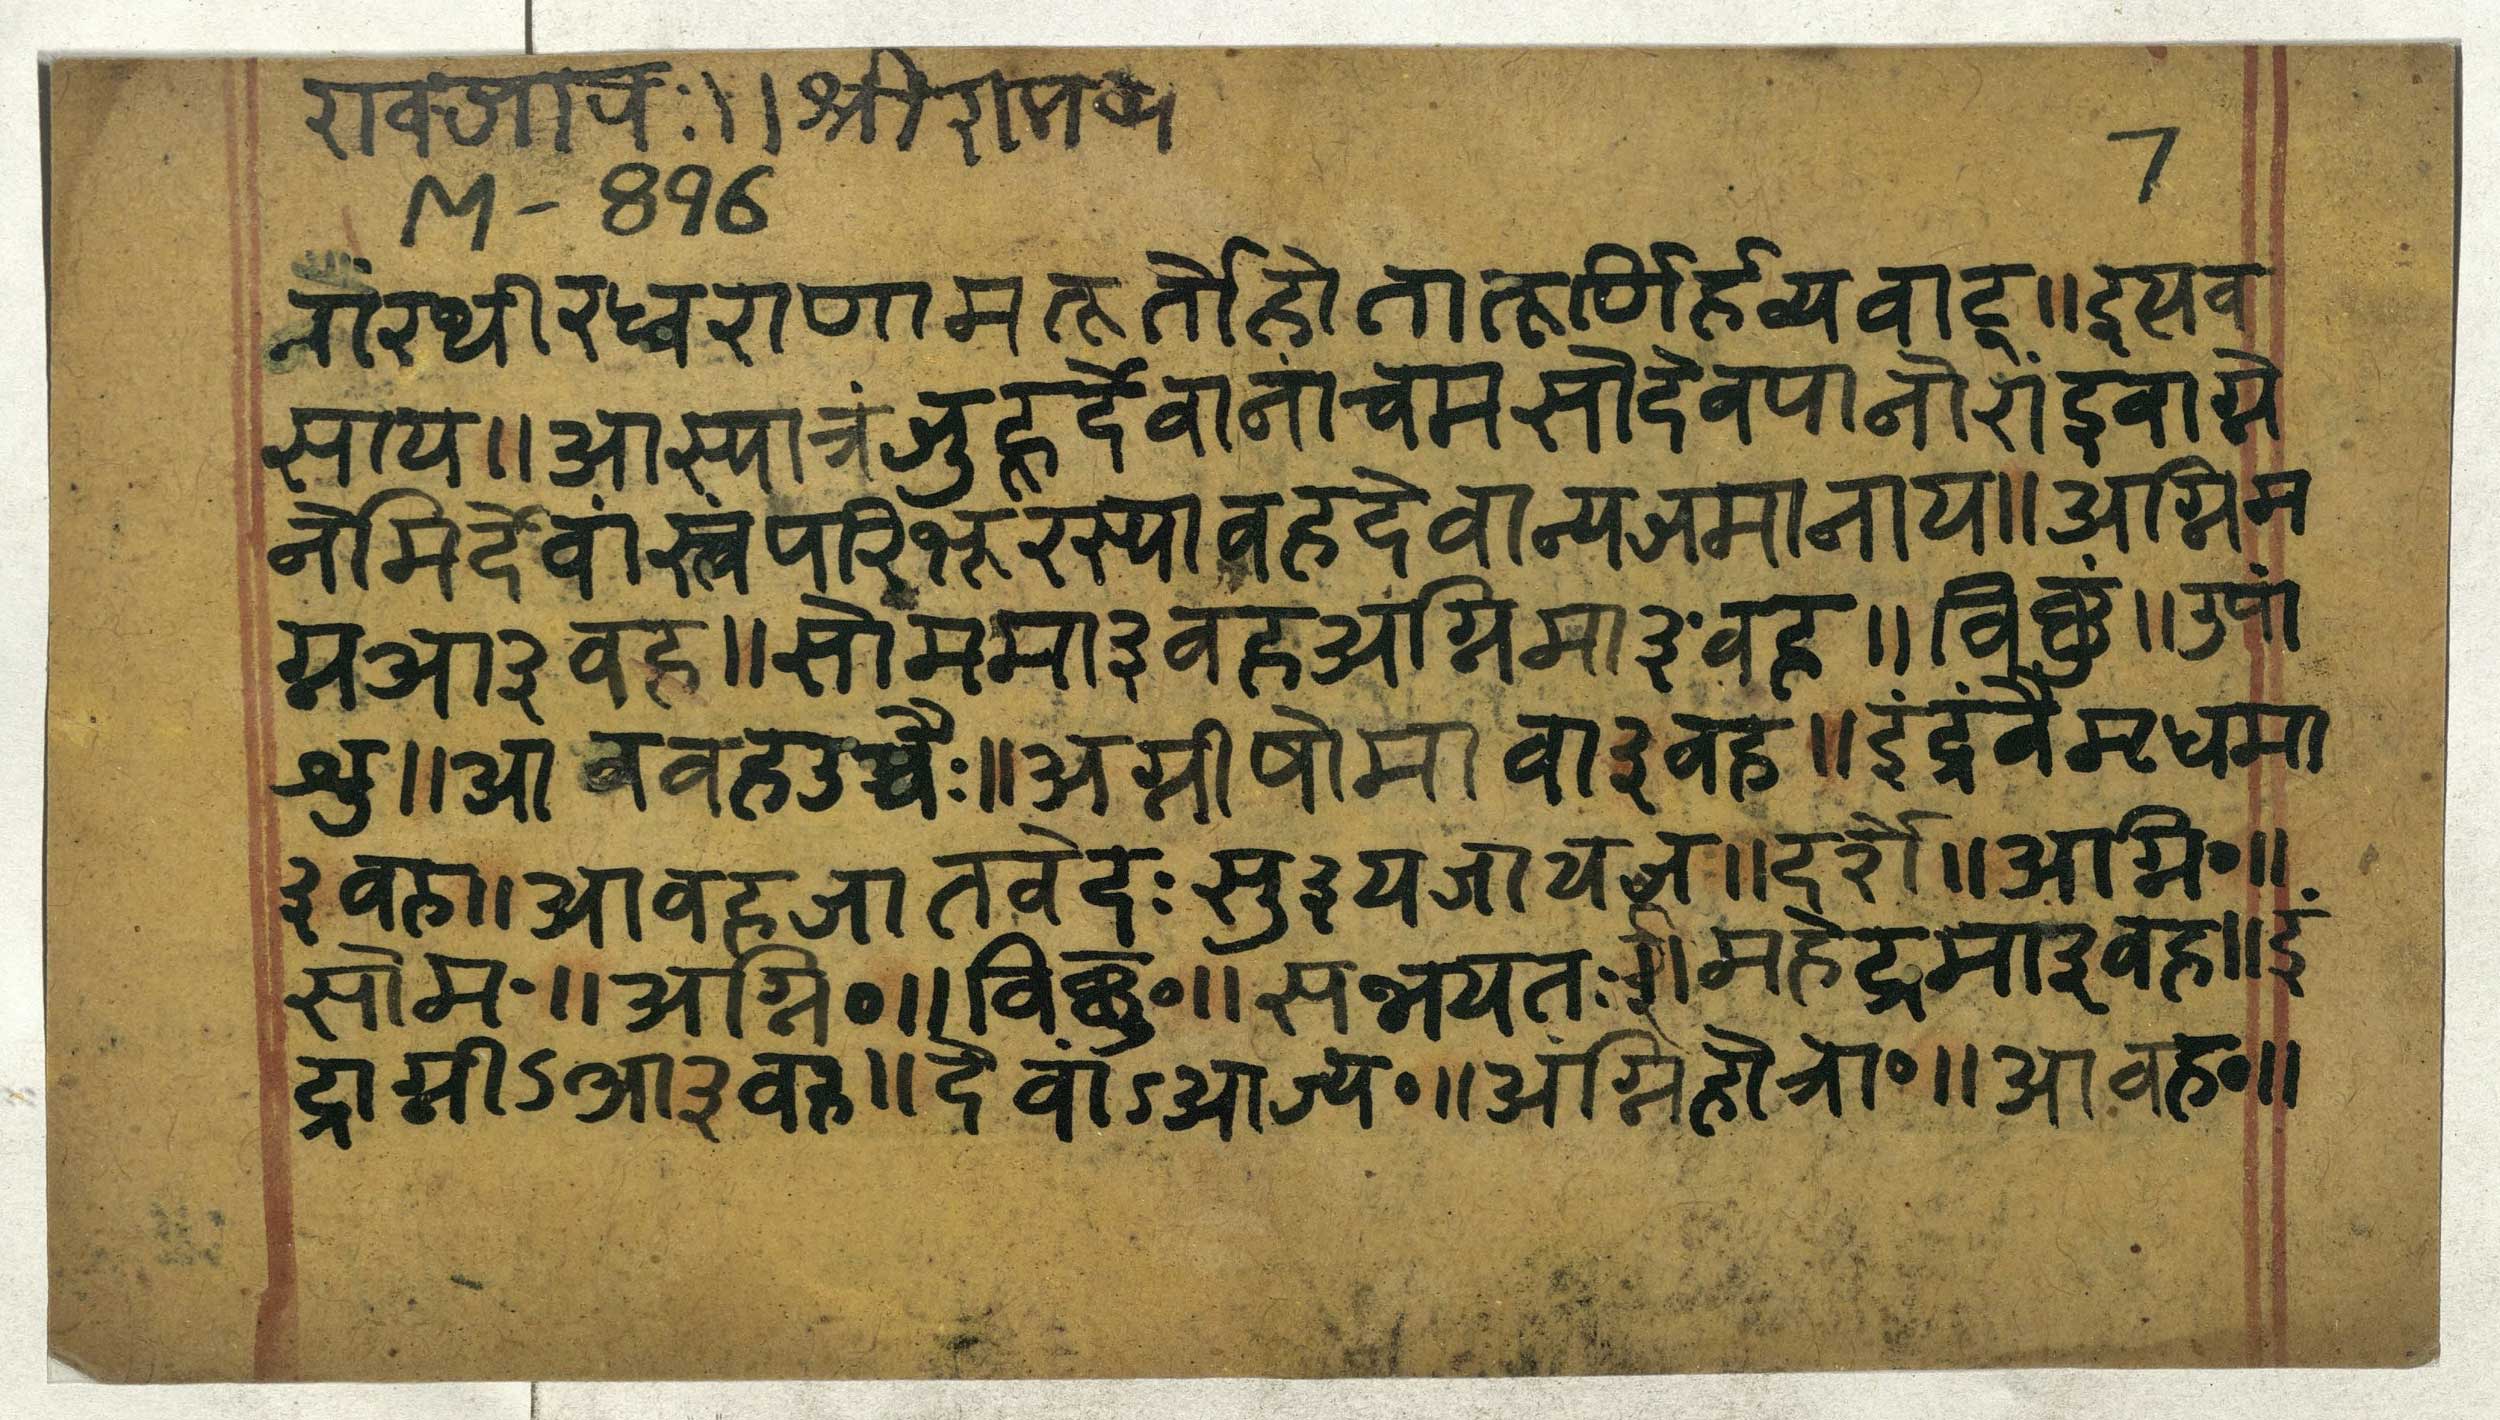 M-896
7
नांरथीरध्वराणामतूर्तोहोतातूर्णिर्हव्यवाट्॥इत्यव
साय॥आस्पात्रंजुहूर्देवानांचमसोदेवपानोरांइवाग्ने
नेमिर्देवांस्त्वंपरिभूरस्यावहदेवान्यजमानाय॥अग्निम
ग्नआ३वह॥सोममा३वहअग्निमा३वह॥विष्णुं॥उपां
शु॥आ ववहउच्चैः॥अग्नीषोमा वा३वह॥इंद्रंवैमृधमा
३वह॥आवहजातवेदः सु३यजायज॥दर्शे॥अग्नि॰॥
सोम॰॥अग्नि॰॥विष्णु॰॥सन्नयतः॥महेंद्रमा३वह॥इं
द्राग्नीऽआ३वह॥देवांऽआज्य॰॥अग्निहोत्रा॰॥आवह॰॥